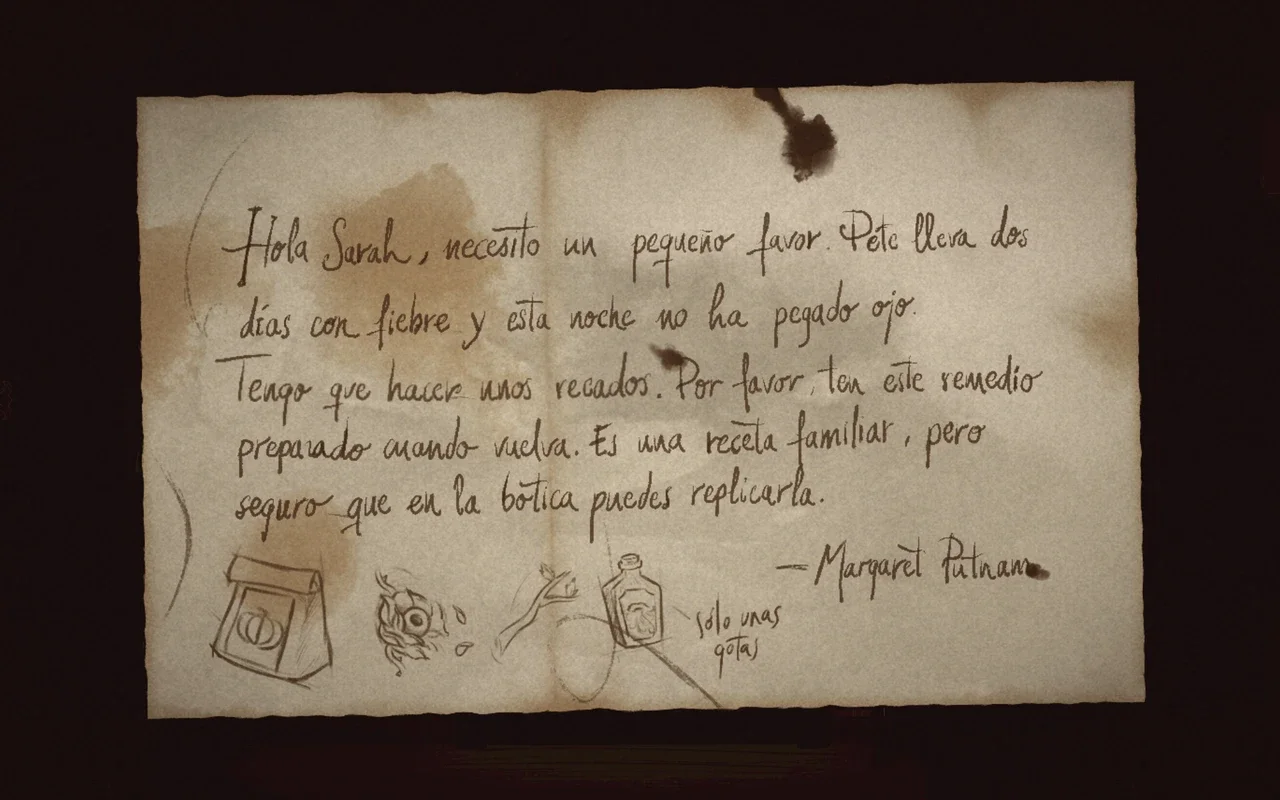 Hola Sarah, necesito un pequeño favor. Pete lleva dos
días con fiebre y esta noche no ha pegado ojo.
Tengo que hacer unos recados. Por favor, ten este remedio
preparado cuando vuelva. Es una receta familiar, pero
seguro que en la botica puedes replicarla.
— Margaret Putnam
sólo unas
gotas